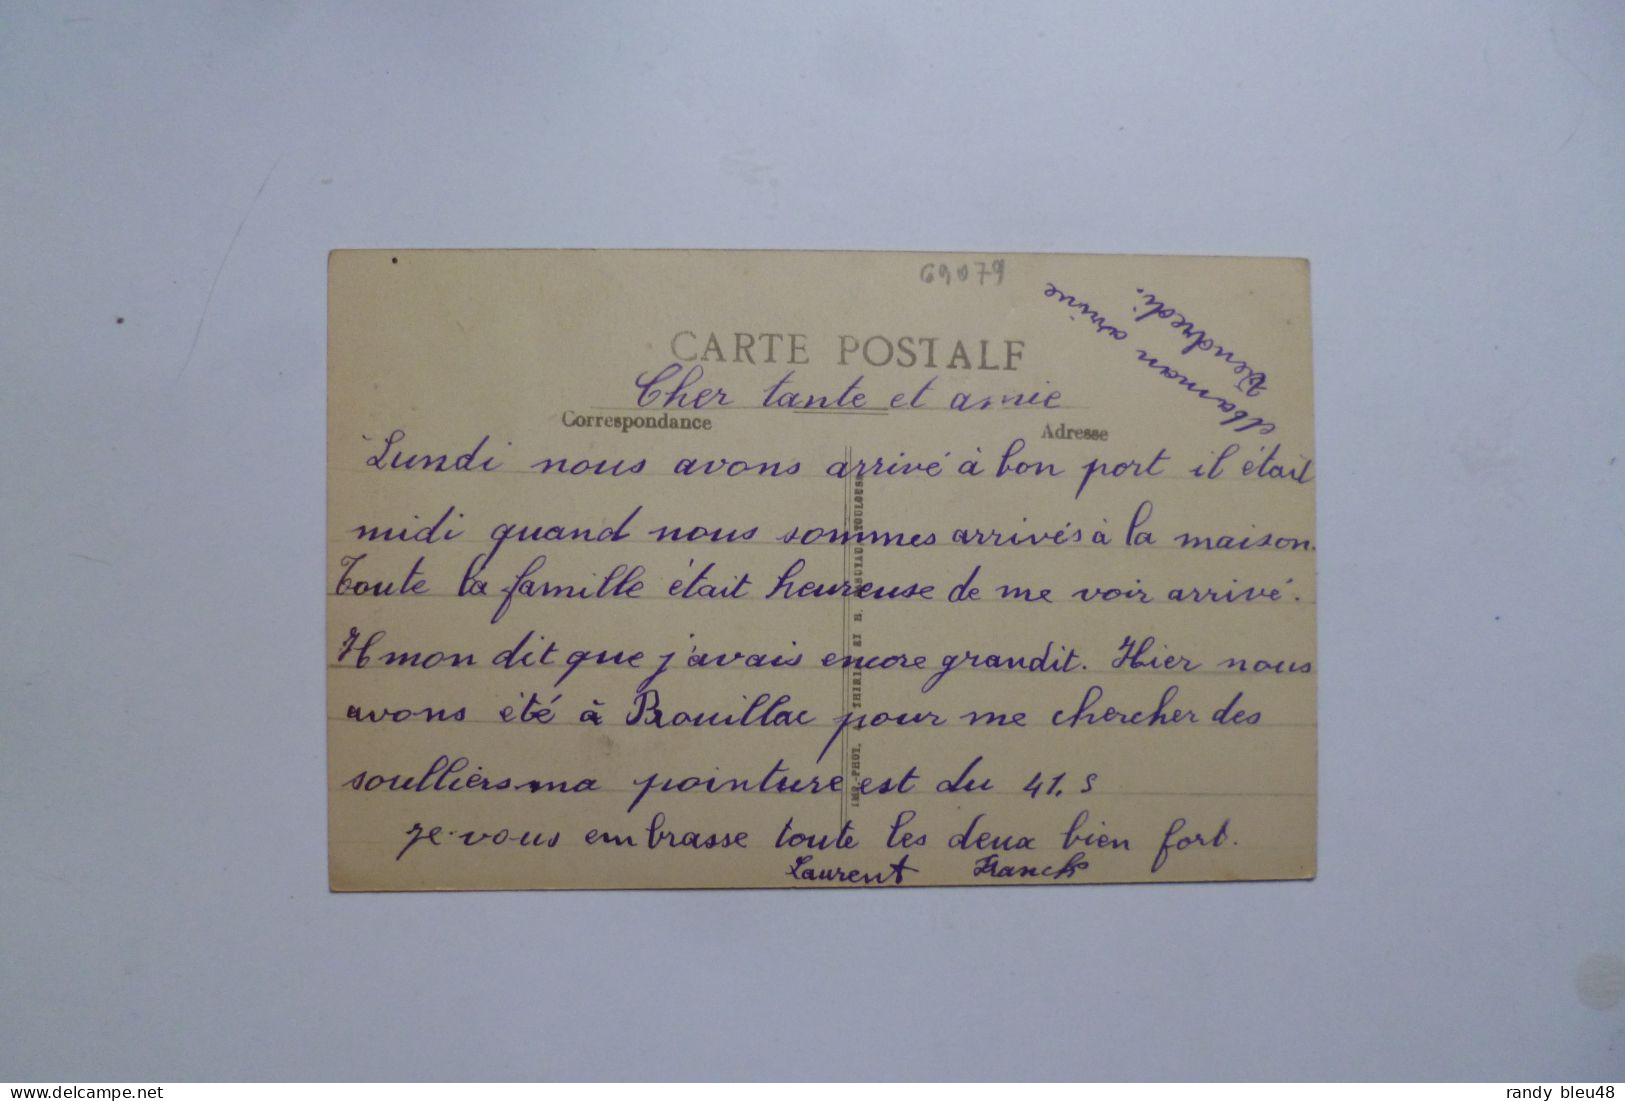 69079
Maman arrive
Vendredi.
CARTE POSTALE
Cher tante et amie
Correspondance
Adresse
Lundi nous avons arrivé à bon port il était
midi quand nous sommes arrivés à la maison.
Toute la famille était heureuse de me voir arrivé.
Il mon dit que j'avais encore grandit. Hier nous
avons été à Rouillac pour me chercher des
soulliers ma pointure est du 41. s
Je vous embrasse toute les deux bien fort.
Laurent Franck
IMP.-PHOT. A. THIRIAT ET B. BASUYAU TOULOUSE
randy bleu48
delcampe.net